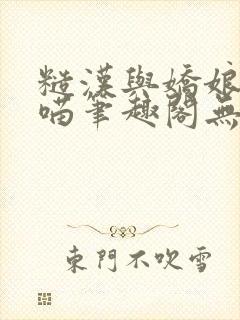 糙漢與嬌娘
喵筆趣閣無
東門不吹雪